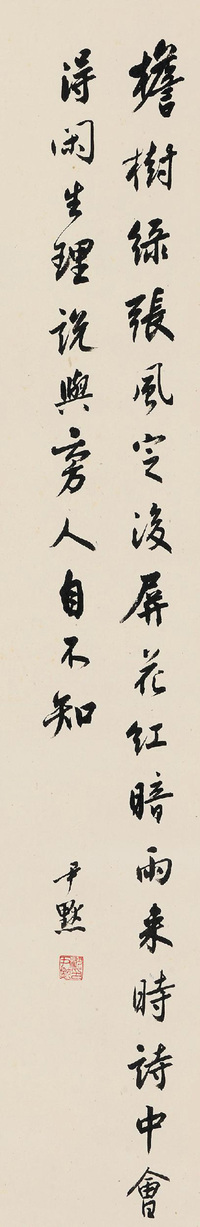 檐樹綠張風定後屏花紅暗雨來時詩中會
得閑生理說與旁人自不知
尹默